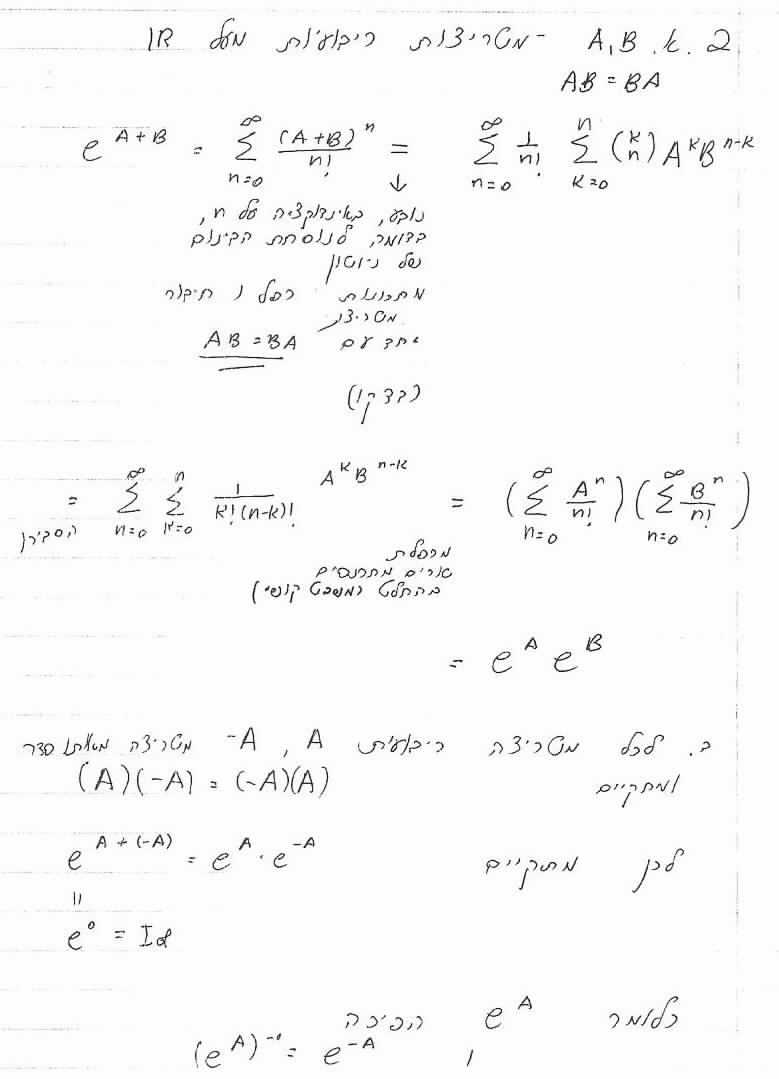 2. א. A, B - מטריצות ריבועיות מעל IR
AB = BA
e^{A+B} = \sum_{n=0}^{∞} \frac{(A+B)^n}{n!} = \sum_{n=0}^{∞} \frac{1}{n!} \sum_{k=0}^{n} (^k_n) A^k B^{n-k}
↓
נובע, באינדוקציה על n,
בדומה, לנוסחת הבינום
של ניוטון
מתכונות כפל ו חיבור
מטריצו
יחד עם AB = BA
(בדקו)
= \sum_{n=0}^{∞} \sum_{k=0}^{n} \frac{1}{k!(n-k)!} A^k B^{n-k} = (\sum_{n=0}^{∞} \frac{A^n}{n!}) (\sum_{n=0}^{∞} \frac{B^n}{n!})
הסבירו
מכפלת
טורים מתכנסים
בהחלט (משפט קושי)
= e^A e^B
ב. לכל מטריצה ריבועית A, -A מטריצה מאותו סדר
ומתקיים (A)(-A) = (-A)(A)
לכן מתקיים e^{A+(-A)} = e^A · e^{-A}
=
e^0 = Id
כלומר e^A הפיכה
ו (e^A)^{-1} = e^{-A}